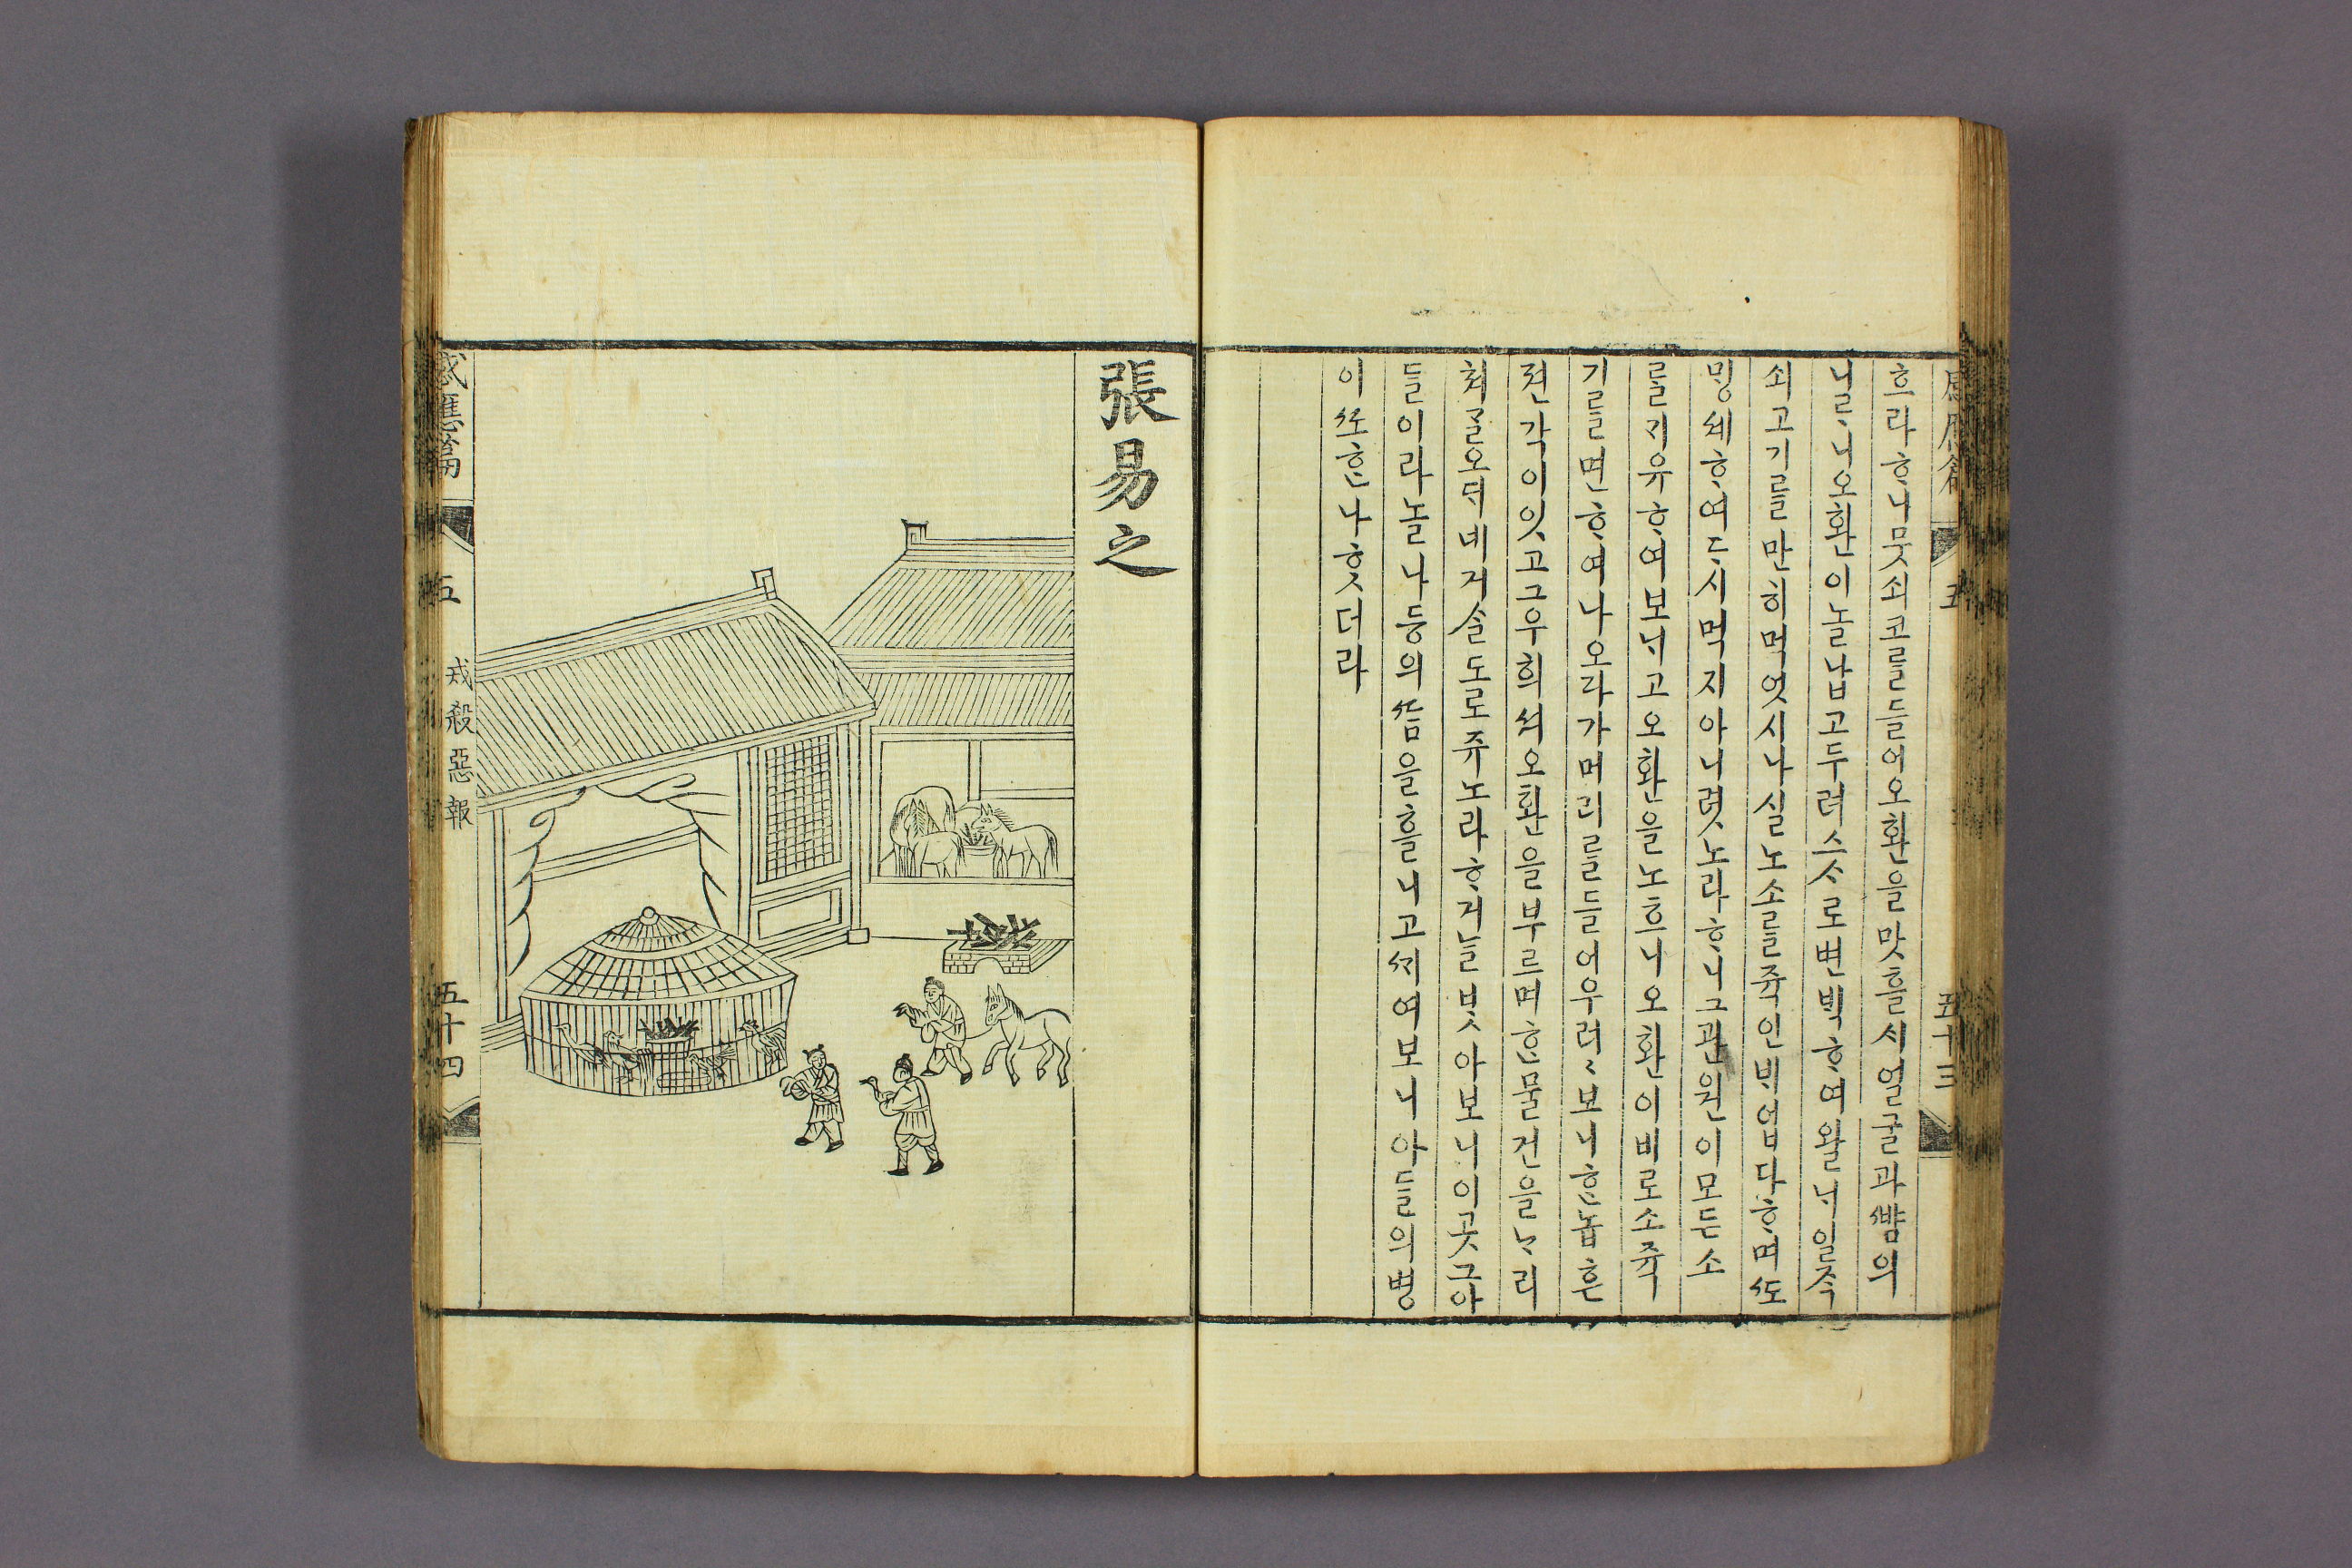 흐라ᄒᆞ니뭇쇠코ᄅᆞᆯ들어오환을맛흘ᄉᆡ얼굴과ᄲᅣᆷ의
니ᄅᆞ니오환이놀납고두려스ᄉᆞ로변ᄇᆡᆨᄒᆞ여왈ᄂᆡ일즉
쇠고기ᄅᆞᆯ만히먹엇시나실노소ᄅᆞᆯ쥭인ᄇᆡ업다ᄒᆞ며ᄯᅩ
밍셰ᄒᆞ여ᄃᆞ시먹지아니렷노라ᄒᆞ니그관원이모든소
ᄅᆞᆯ지유ᄒᆞ여보ᄂᆡ고오환을노흐니오환이비로소쥭
기ᄅᆞᆯ면ᄒᆞ여나오라가머리ᄅᆞᆯ들어우러ᄅᆞ보니ᄒᆞᆫ놉흔
젼각이잇고그우희셔오환을부르며ᄒᆞᆫ물건을ᄂᆞ리
쳐ᄀᆞᆯ오ᄃᆡ네거슬도로쥬노라ᄒᆞ거늘밧아보니이곳그아
들이라놀나등의ᄯᆞᆷ을흘니고ᄭᆡ여보니아들의병
이ᄯᅩᄒᆞᆫ나핫더라
五
五十三
張易之
感應篇
五
戒殺惡報
五十四